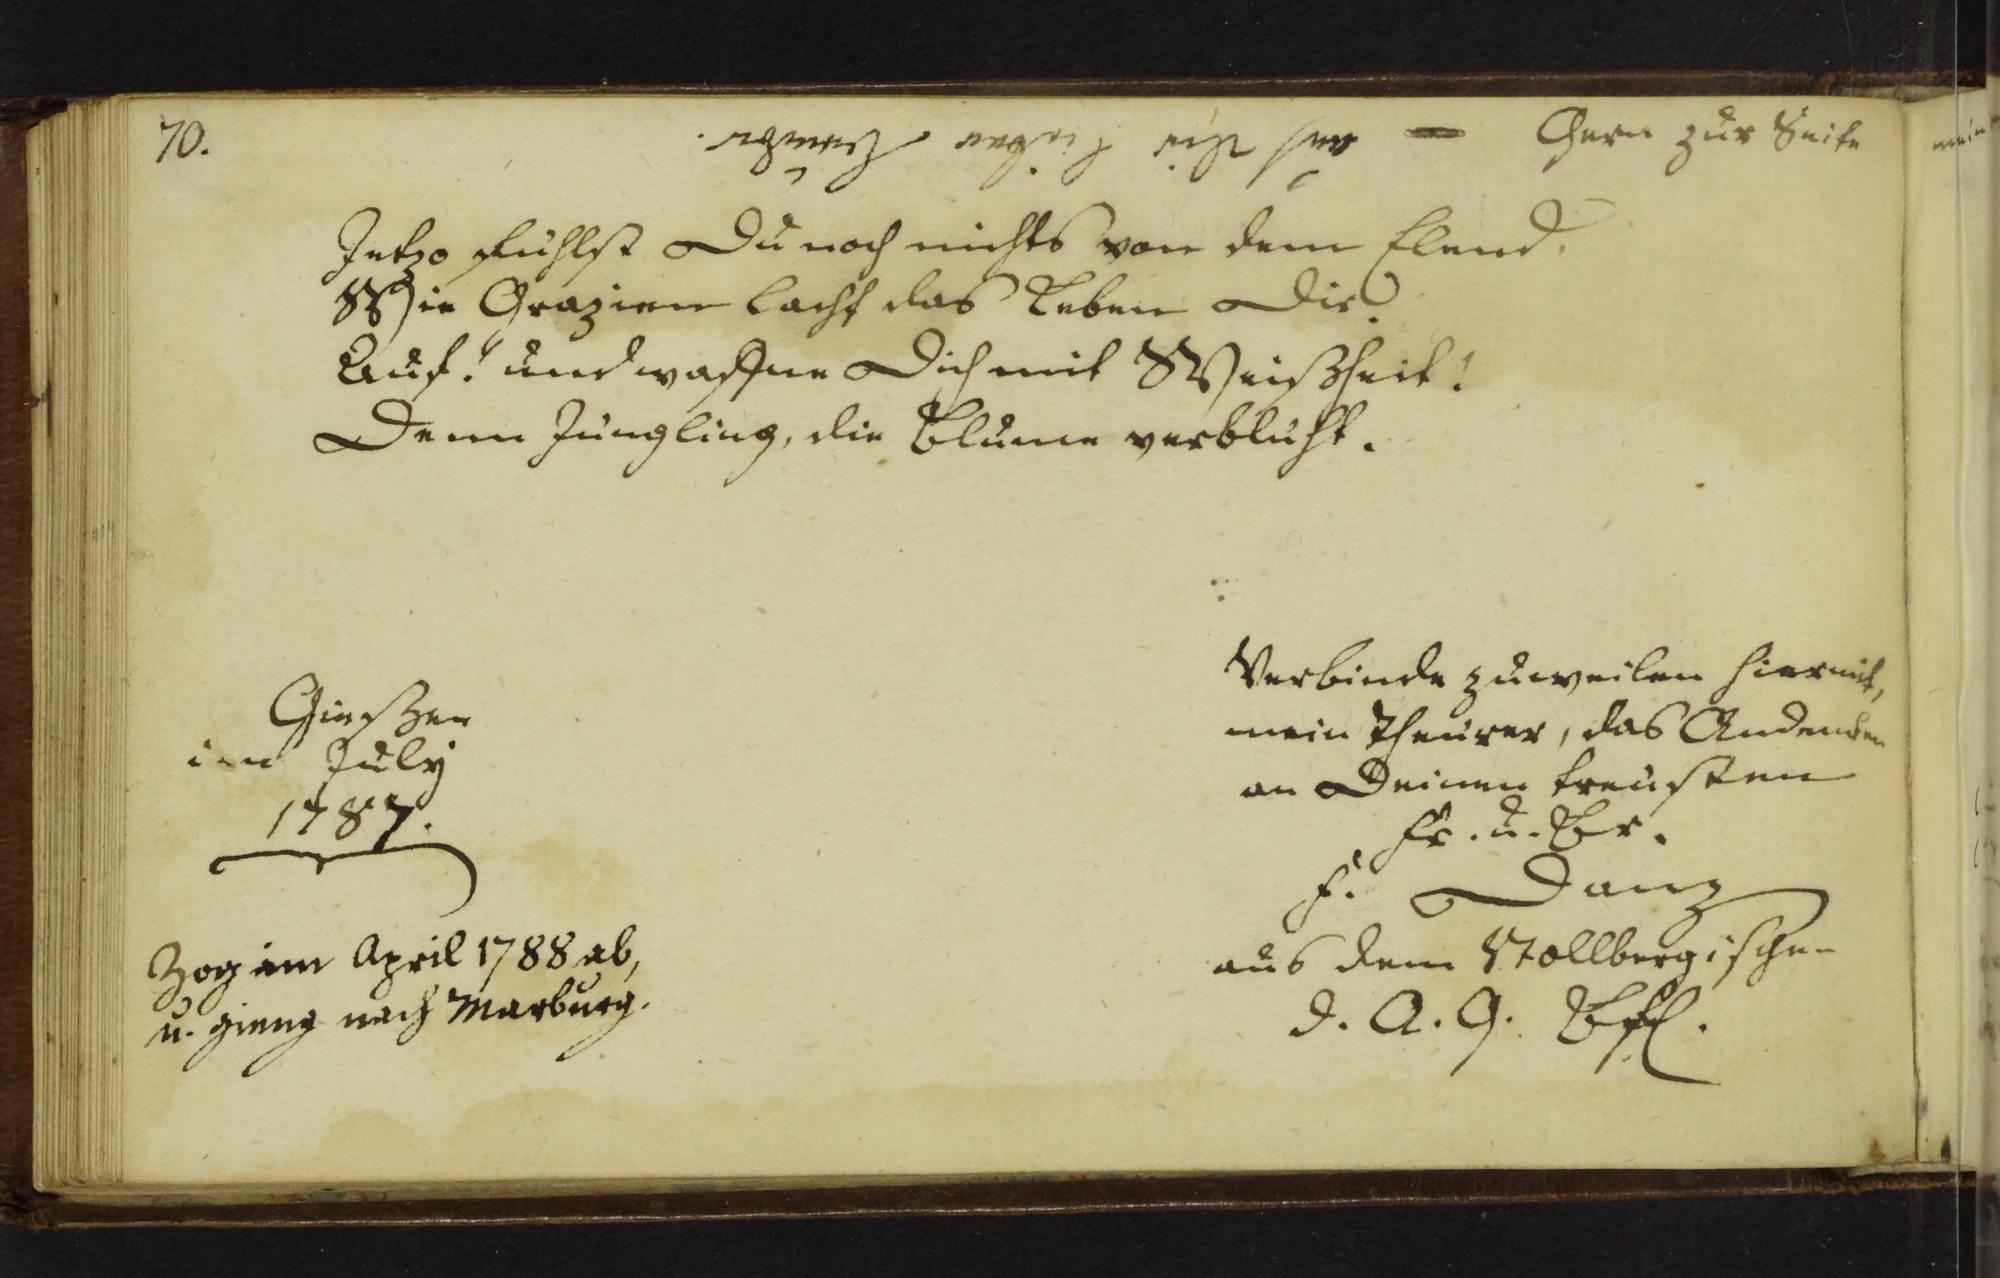 70.
Gern zur Seite
Jetzo fühlst Du noch nichts von dem Elend.
Wie Grazien lacht das Leben Dir.
Auf! und waffne Dich mit Weißheit!
Denn Jüngling, die Blume verblüht.
Verbinde zuweilen hiermit,
mein Theurer, das Andenken
an Deinen treusten
Fr. u. Br.
F. Danz
aus dem Stollbergischen
d. A. G. Bfl.
Gießen
im July
1787.
Zog im April 1788 ab,
u. gieng nach Marburg.